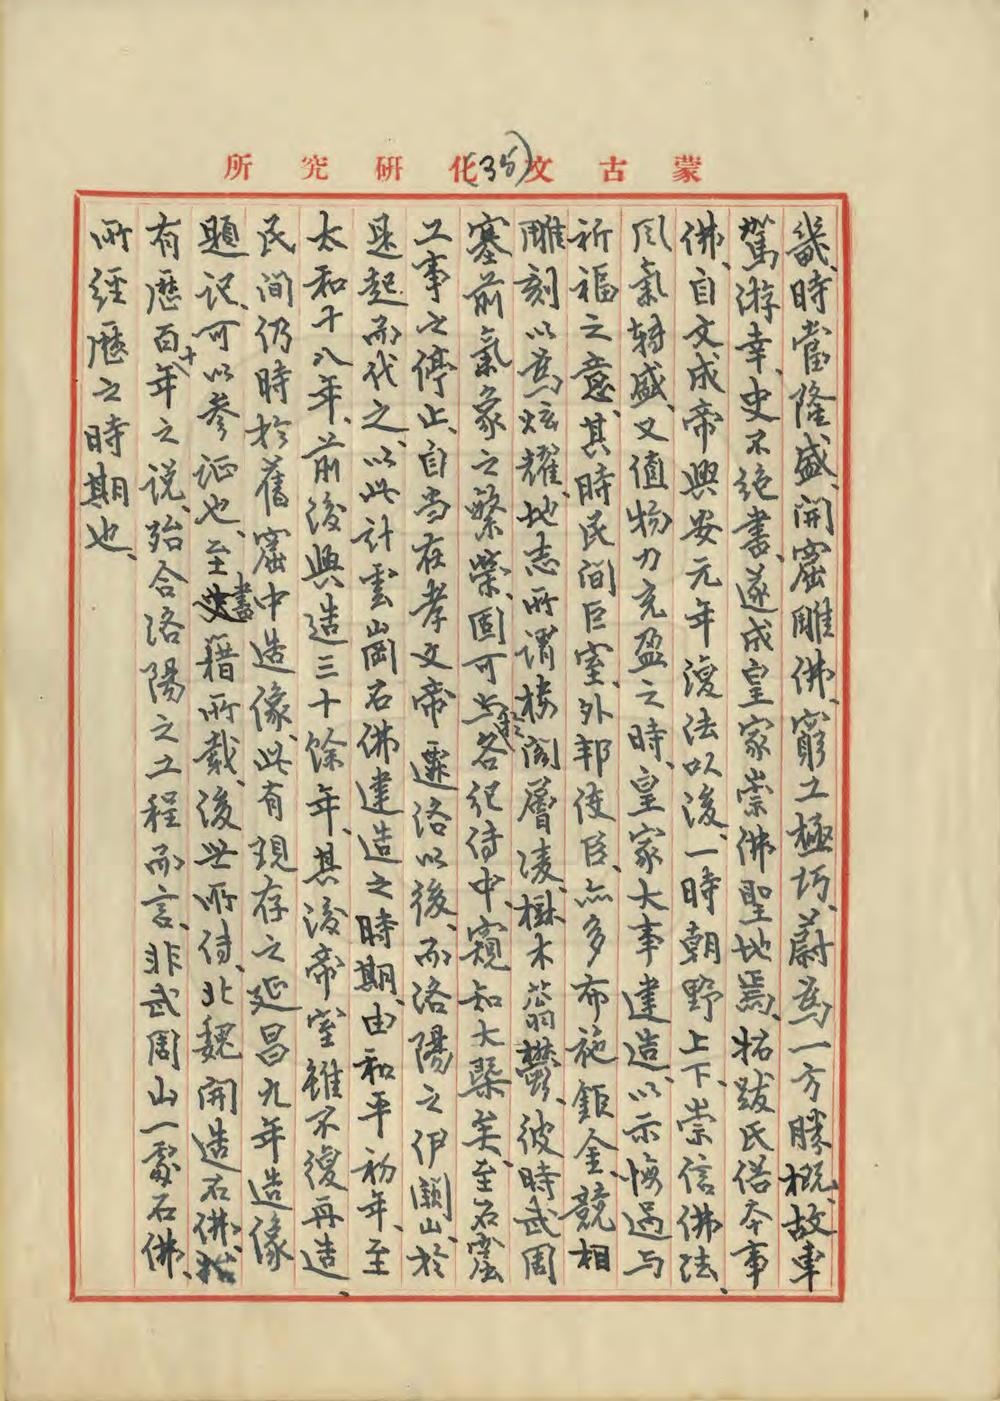 蒙古文化研究所
(35)
畿、時當隆盛、開窟雕佛、窮工極巧、蔚為一方勝概、故車
駕游幸、史不絕書、遂成皇家崇佛聖地焉、拓跋氏偌夲事
佛、自文成帝興安元年復法以後、一時朝野上下、崇信佛法、
風氣轉盛、又值物力充盈之時、皇家大事建造、以示悔過与
祈福之意、其時民间巨室、外邦使臣、亦多布施鉅金、競相
雕刻以為炫耀、地志所謂楼阁層凌、樹木蓊鬱、彼時武周
塞前氣象之繁榮、固可与各纪传中、窺知大槩矣、至石窟
工事之停止、自当在孝文帝遷洛以後、而洛陽之伊闕山、於
是起而代之、以此計雲岡石佛建造之時期、由和平初年、至
太和十八年、前後興造三十餘年、其後帝室雖不復再造、
民间仍時於舊窟中造像、此有現存之延昌九年造像
題记、可以参证也、至書籍所載、後世所传、北魏開造石佛、
有歷百十年之说、殆合洛陽之工程而言、非武周山一處石佛、
所經歷之時期也、